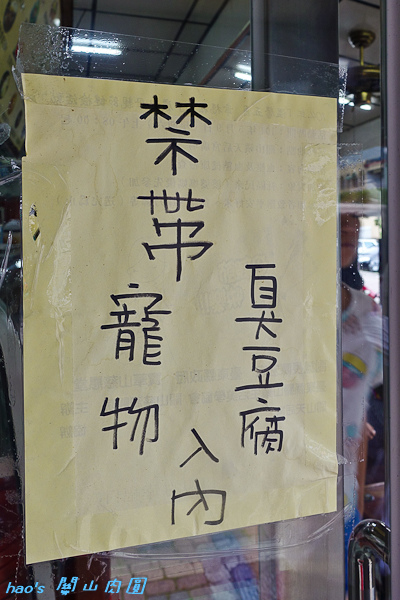 禁帶
臭豆腐
寵物
入內
hao's 關山肉圓